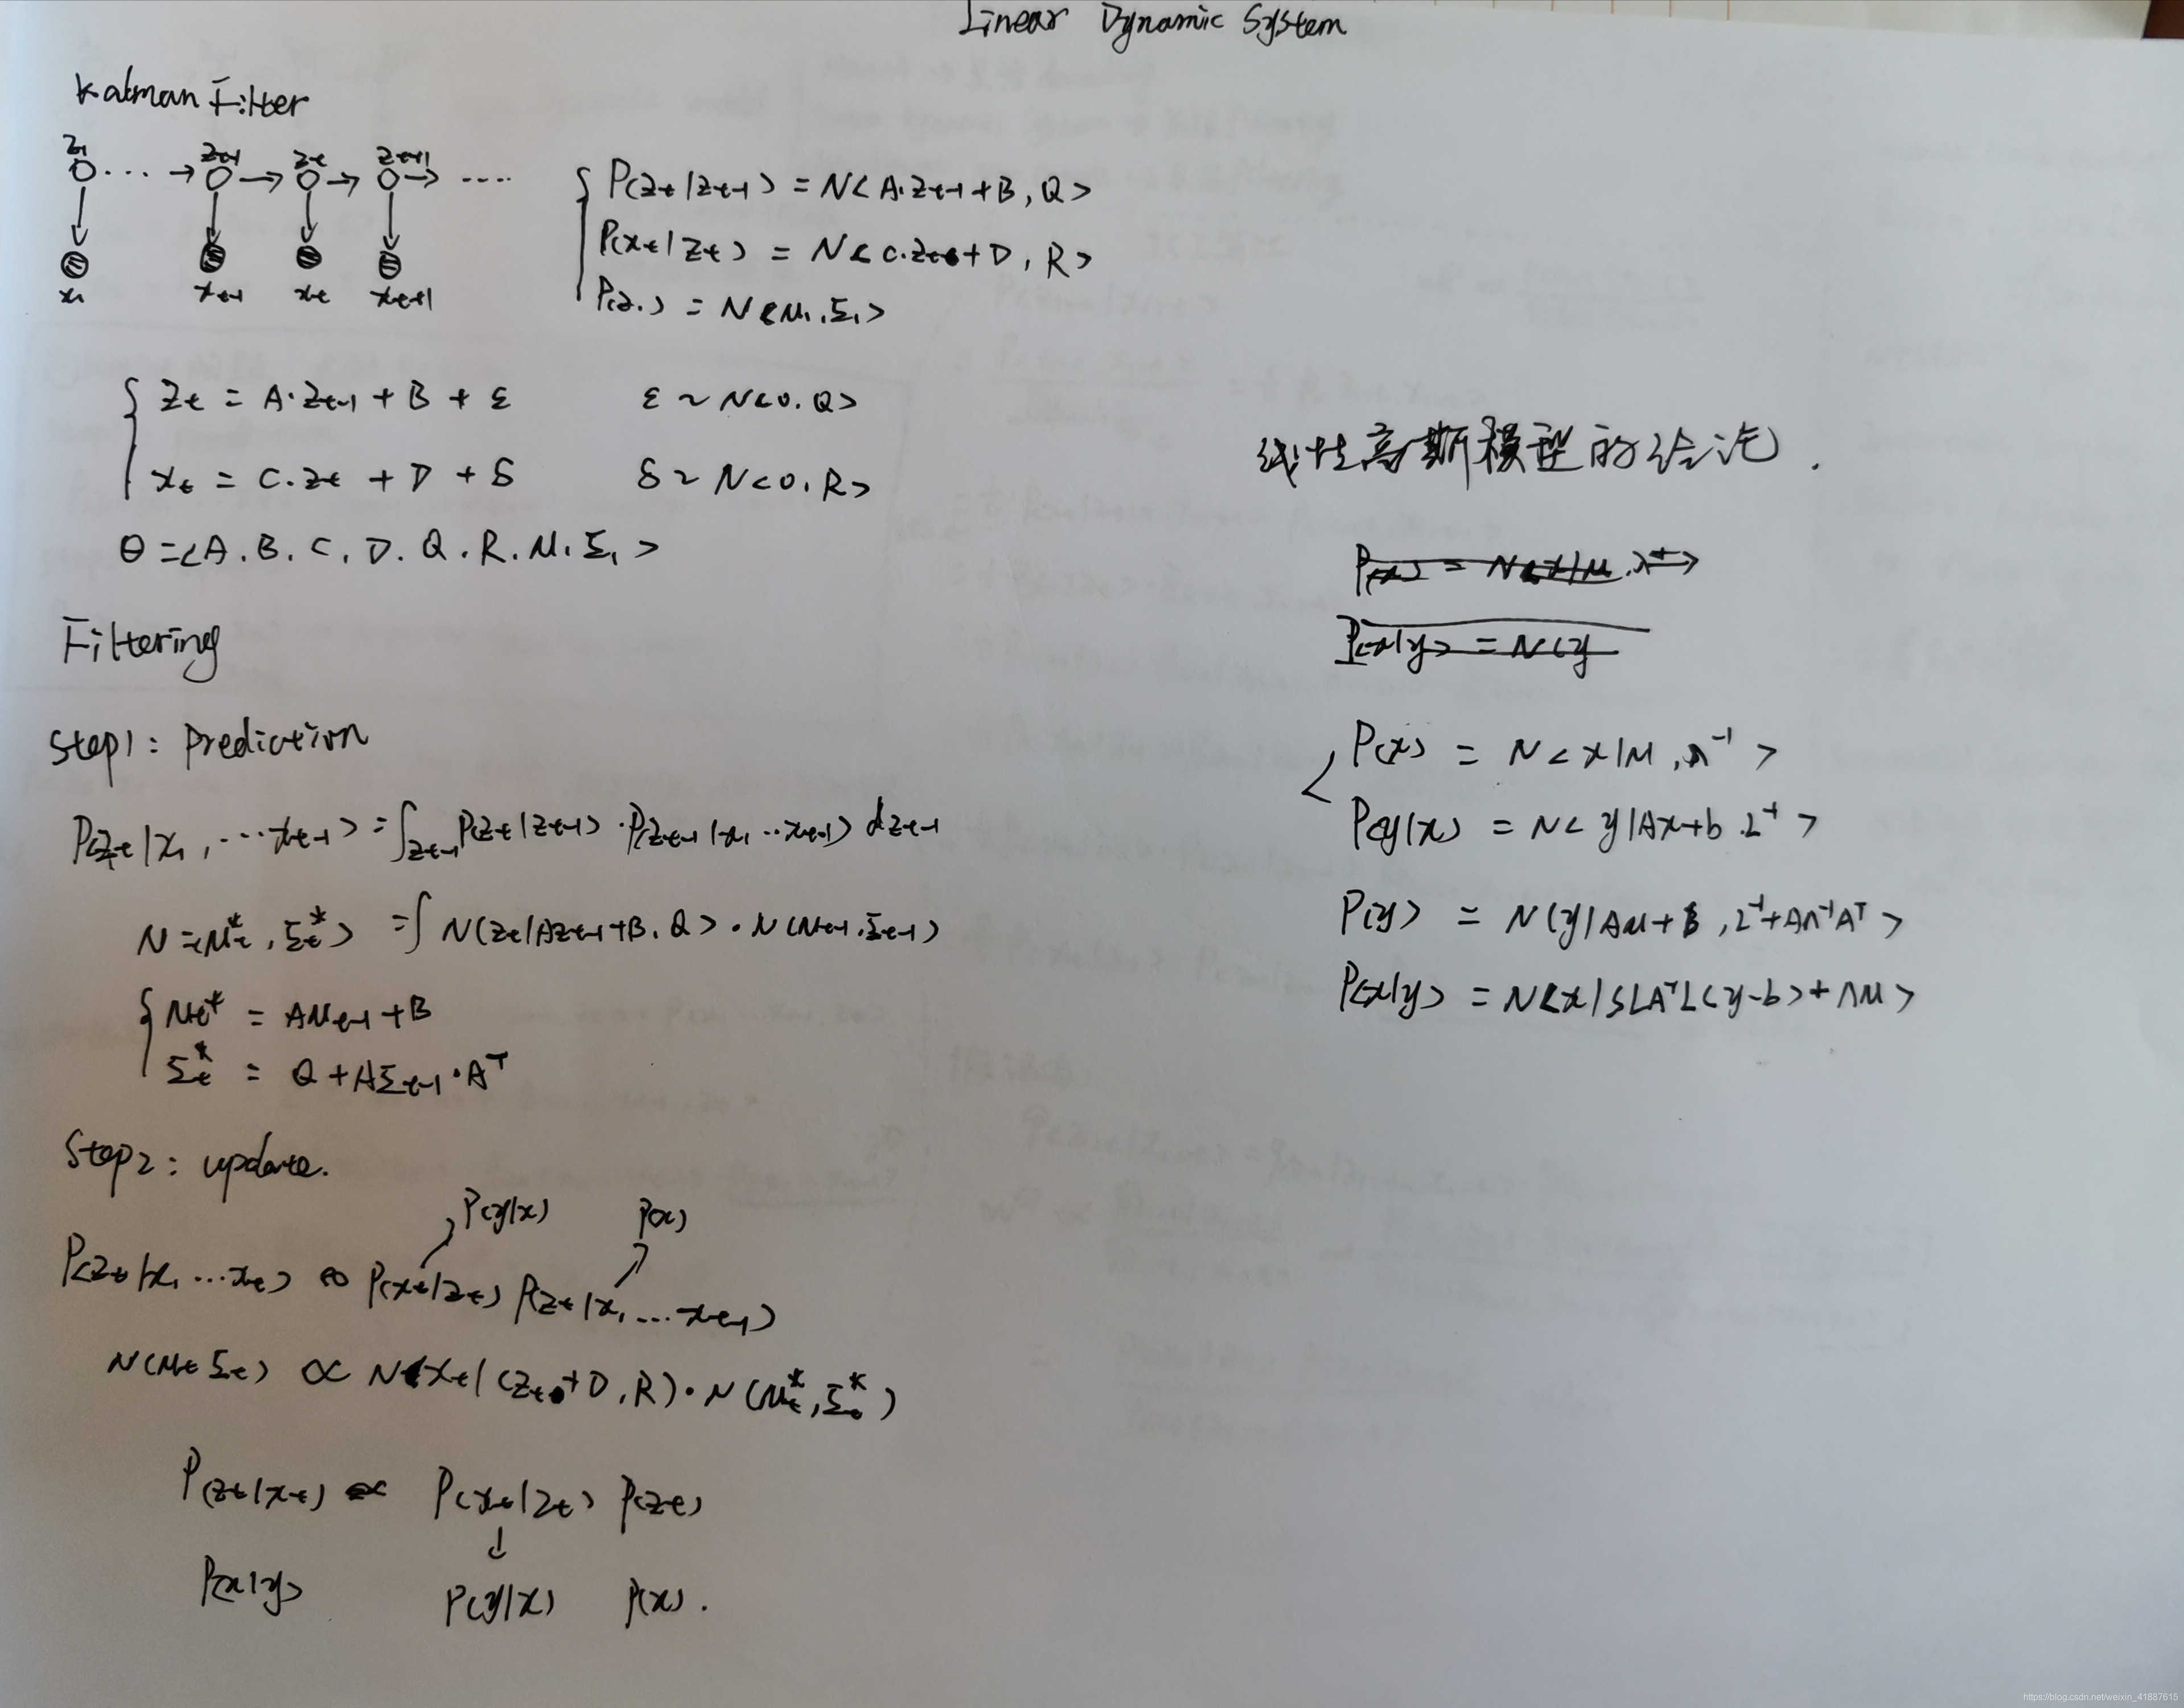 Linear Dynamic System
Kalman Filter
z₁ ... → z_{t-1} → z_t → z_{t+1} → ....
x₁ x_{t-1} x_t x_{t+1}
P(z_t|z_{t-1}) = N<A·z_{t-1}+B, Q>
P(x_t|z_t) = N<C·z_t+D, R>
P(z₁) = N<μ₁, Σ₁>
z_t = A·z_{t-1} + B + ε ε ~ N<0, Q>
x_t = C·z_t + D + δ δ ~ N<0, R>
θ = <A. B. C. D. Q. R. μ₁. Σ₁>
Filtering
Step1: Prediction
P(z_t|x₁, ...x_{t-1}) = ∫_{z_{t-1}} P(z_t|z_{t-1})·P(z_{t-1}|x₁...x_{t-1}) dz_{t-1}
N=<μ_t^*, Σ_t^*> = ∫ N(z_t|Az_{t-1}+B, Q>·N(μ_{t-1}, Σ_{t-1})
μ_t^* = Aμ_{t-1}+B
Σ_t^* = Q+AΣ_{t-1}·A^T
Step2: update.
P(y|x) P(x)
P(z_t|x₁...x_t) ∝ P(x_t|z_t) P(z_t|x₁...x_{t-1})
N(μ_t Σ_t) ∝ N(x_t|Cz_t+D, R)·N(μ_t^*, Σ_t^*)
P(z_t|x_t) ∝ P(x_t|z_t) P(z_t)
↓
P(x|y) P(y|x) P(x).
线性高斯模型的结论.
P(x) = N<x|μ, Λ^{-1}>
P(y|x) = N<y|Ax+b. L^{-1}>
P(y) = N(y|Aμ+b, L^{-1}+AΛ^{-1}A^T>
P(x|y) = N<x|S(A^T L(y-b)+Λμ>
https://blog.csdn.net/weixin_41887615